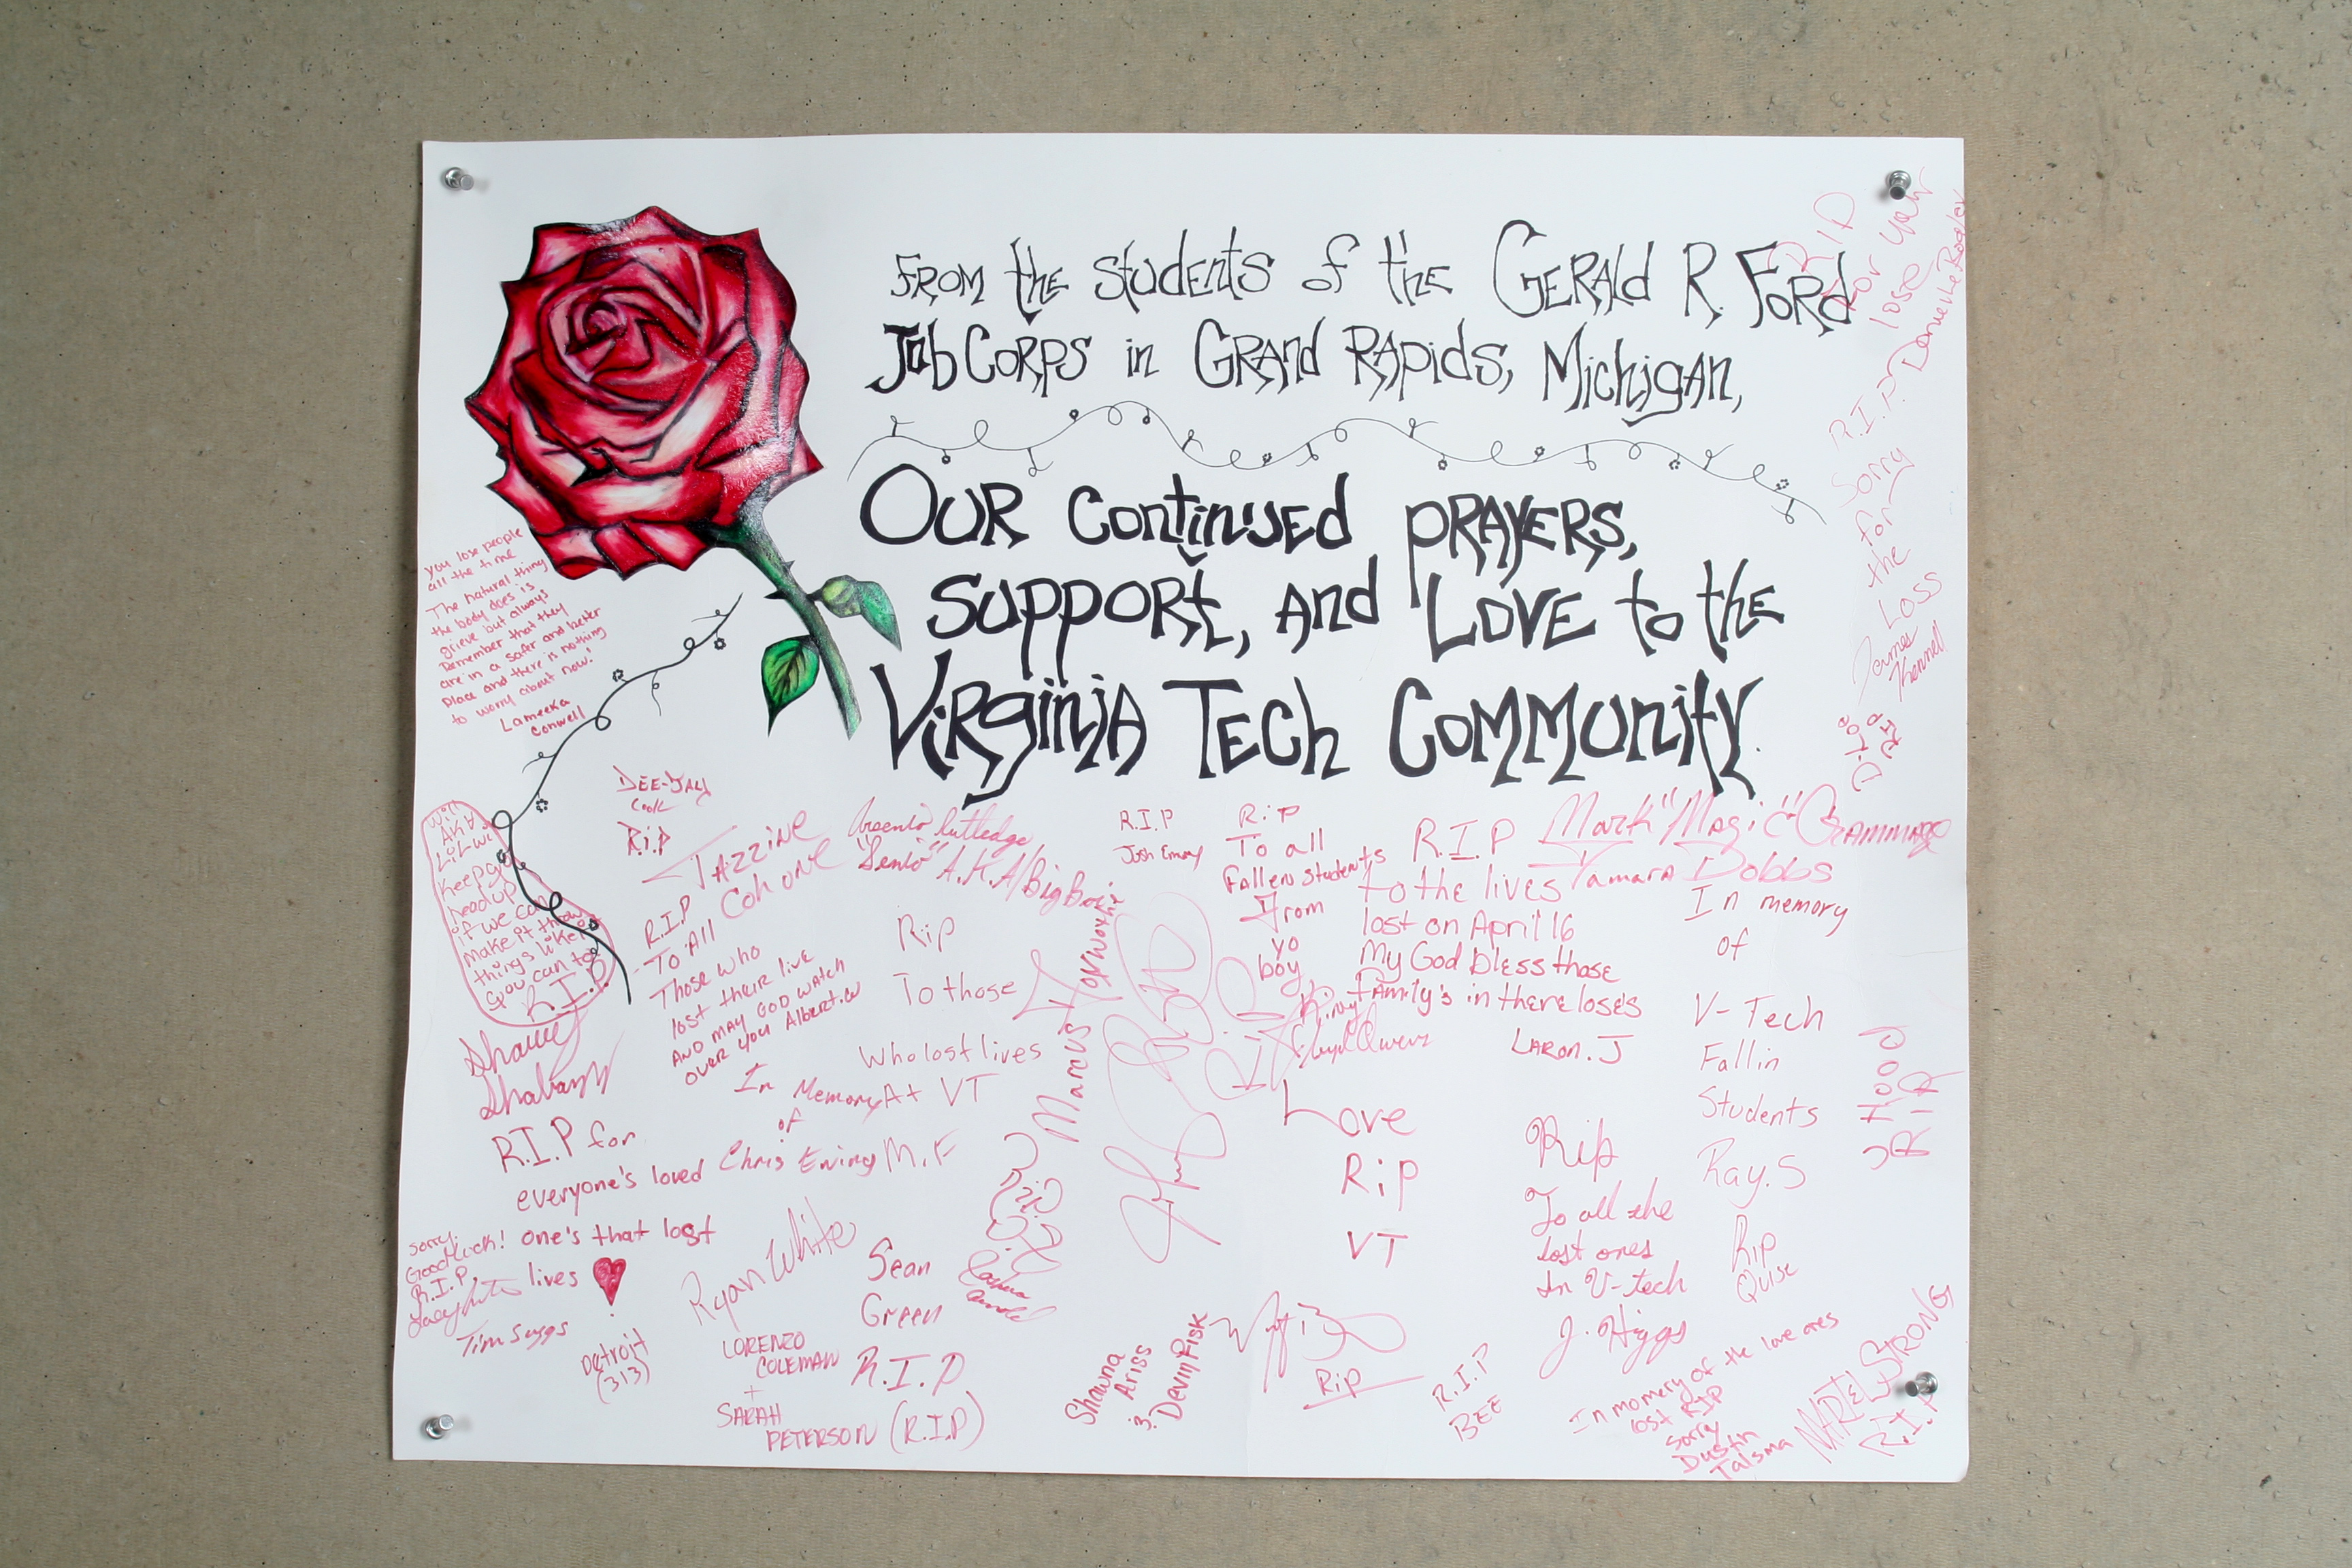 FROM the students of the GERAld R. FORd
Job CORPS in GRAnd RApids, Michigan,
OUR continued PRAYERS,
suppoRt, And LOVE to the
ViRginiA TECh COMMUnity.
you lose people
all the time
The natural thing
the body does is
grieve but always
Remember that they
are in a safer and better
place and there is nothing
to worry about now!
Lameeka
Conwell
Will
AKA
Lil-Wil
Keep yo
head up
if we can
make it threw
things like this
you can too
R.I.P.
DEE-JAY
Cook
R.i.P
JAZZINE
COHONE
R.I.P
To All
Those who
lost their live
AND MAY GOD WATCH
OVER you Albert.W
Arsenio Rutledge
"Senio" A.K.A/Big Boi
Rip
To those
Who lost lives
At VT
M.F
In Memory
of
Chris Ewing
R.I.P for
everyone's loved
one's that lost
lives
Sorry.
Good luck!
R.I.P.
Tim Suggs
Detroit
(313)
Ryan White
LORENZO
COLEMAN
+
SARAH
PETERSON (R.I.P)
Sean
Green
R.I.P
Marcus
R.I.P
Josh Emery
R.i.P
To all
Fallen students
From
yo
boy,
Floyd Owens
R.I.P
to the lives
lost on April 16
My God bless those
Family's in there lose's
LARON.J
Mark "Magic" GRAMMAGE
Tamara Dobbs
In memory
of
V-Tech
Fallin
Students
Ray.S
Rip
Quise
Love
Rip
VT
Rip
To all the
lost ones
In V-tech
J. Higgs
Shawna
Ariss
Devin Fisk
Rip
R.I.P
BEE
In momery of the love ones
lost RIP
sorry
Dustin
Talsma
NARTEL STRONG
R.I.P
J HOOD
R I P
D-Loc
RIP
R.I.P
Sorry
for
the
Loss
James
Khannell
RIP
for your
lose